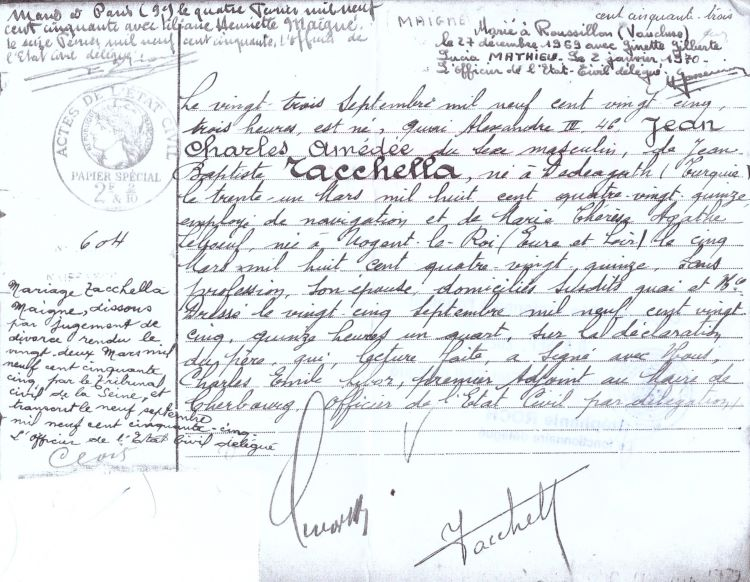 Marié à Paris (9e) le quatre Février mil neuf
cent cinquante avec Liliane Henriette Maigne.
le seize Février mil neuf cent cinquante, L'Officier de
l'Etat Civil délégué,
MAIGNE
cent cinquante-trois
Marié à Roussillon (Vaucluse)
le 27 décembre 1969 avec Ginette Gilberte
Lucia MATHIEU. Le 2 janvier 1970
L'Officier de l'Etat-Civil délégué
ACTES DE L'ÉTAT CIVIL
PAPIER SPÉCIAL
2F 2
& 10
604
Le vingt-trois Septembre mil neuf cent vingt cinq,
trois heures, est né, Quai Alexandre III 46 Jean
Charles Amédée du sexe masculin, de Jean
Baptiste Tacchella, né à Dedeagath (Turquie)
le trente-un Mars mil huit cent quatre-vingt quinze
employé de navigation et de Marie Thérèse Agathe
Leboeuf, née à Nogent-le-Roi (Eure et Loir) le cinq
Mars mil huit cent quatre-vingt quinze, sans
profession, son épouse, domiciliés susdits quai et No
Dressé le vingt-cinq Septembre mil neuf cent vingt-
cinq, quinze heures un quart, sur la déclaration
du père, qui, lecture faite, a signé avec Nous,
Charles Emile premier Adjoint au Maire de
Cherbourg, Officier de l'Etat Civil par délégation,
Mariage Tacchella
Maigne, dissous
par jugement de
divorce rendu le
vingt deux Mars mil
neuf cent cinquante
cinq, par le tribunal
civil de la Seine, et
transcrit le neuf septembre
mil neuf cent cinquante-cinq.
L'Officier de l'Etat Civil délégué
Tacchella